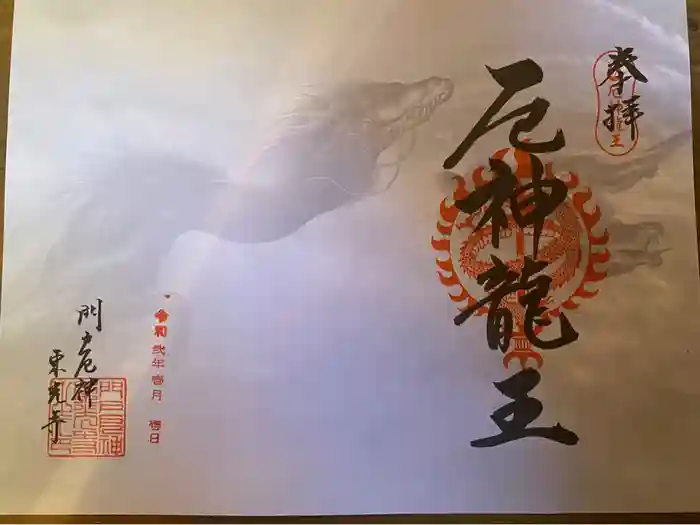 奉拝
厄神龍王
令和 弐年 壱月 碍日
門戸厄神
東光寺